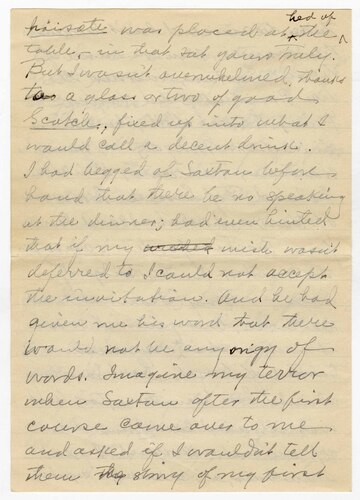 hed of
was placed at the
table, in that sat yours truly.
But I wasn't overwhelmed, thanks
to a glass or two of good
Scotch, fixed up into what I
would call a decent drink.
I had begged of Saxton before
hand that there be no speaking
at the dinner; had even hinted
that if my wish wasn't
deferred to I could not accept
the invitation. And he had
given me his word that there
would not be any orgy of
words. Imagine my terror
when Saxton after the first
course came over to me
and asked if I wouldn't tell
them the story of my first